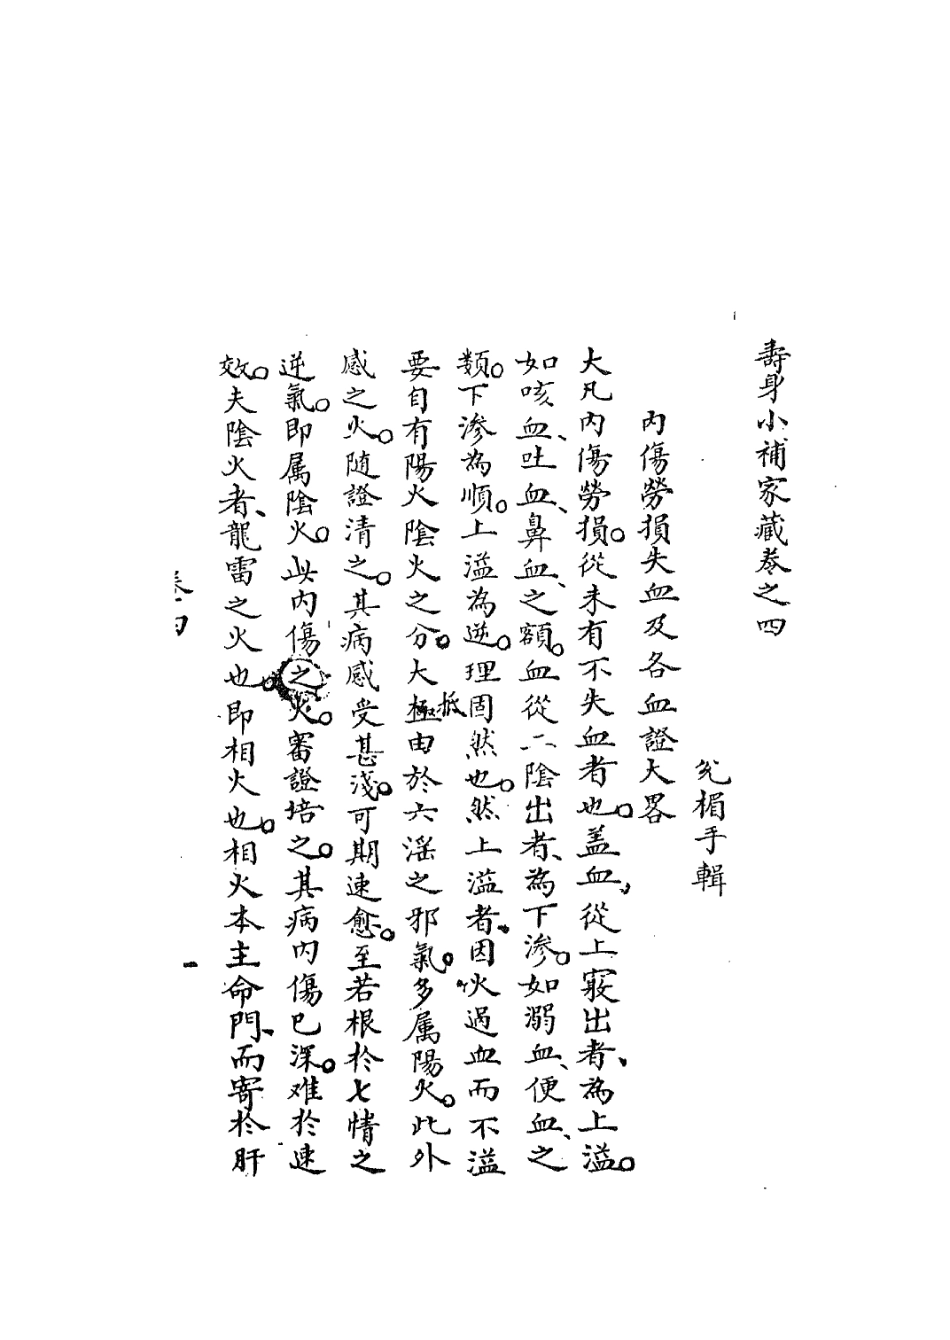 壽身小補家藏卷之四
兊楣手輯
內傷勞損失血及各血證大畧
大凡內傷勞損。從未有不失血者也。盖血、從上竅出者、為上溢。
如咳血、吐血、鼻血、之額。血從二陰出者、為下滲。如溺血、便血、之
類。下滲為順。上溢為逆。理固然也。然上溢者、因火過血而不溢
要自有陽火陰火之分。大極抵由於六淫之邪氣。多属陽火。此外
感之火。随證清之。其病感受甚淺。可期速愈。至若根於七情之
逆氣。即属陰火。此內傷之火。審證培之。其病內傷已深。难於速
效。夫陰火者、龍雷之火也。即相火也。相火本主命門、而寄於肝
卷四
一